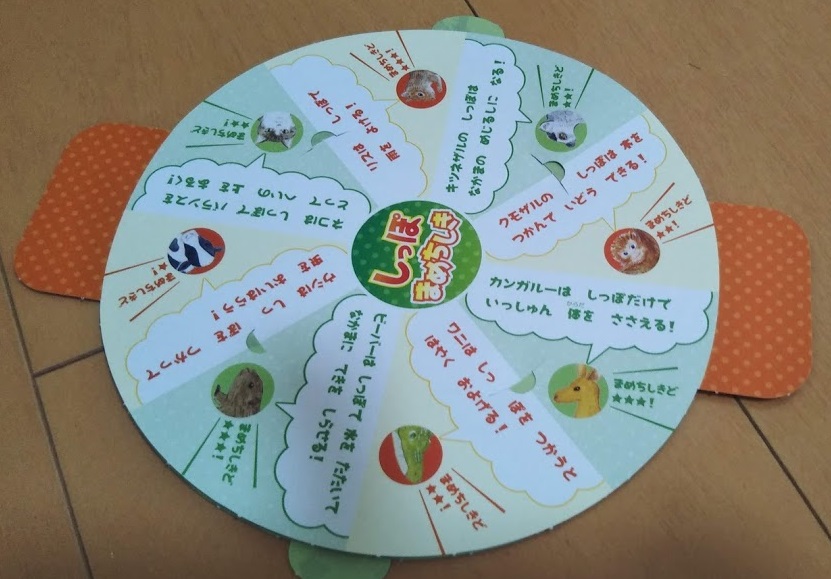 しっぽ
まめちしき
キツネザルの しっぽは
なかまの めじるしに なる!
まめちしきど
★★!
クモザルの しっぽは 木を
つかんで いどう できる!
まめちしきど
★★!
カンガルーは しっぽだけで
いっしゅん 体を ささえる!
まめちしきど
★★★!
ワニは しっぽを つかうと
はやく およげる!
まめちしきど
★★!
ビーバーは しっぽで 水を たたいて
なかまに てきを しらせる!
まめちしきど
★★★!
ウシは しっぽを つかって
虫を おいはらう!
まめちしきど
★!
ネコは しっぽで バランスを
とって へいの 上を あるく!
まめちしきど
★★!
リスは しっぽで
雨を よける!
まめちしきど
★★★!